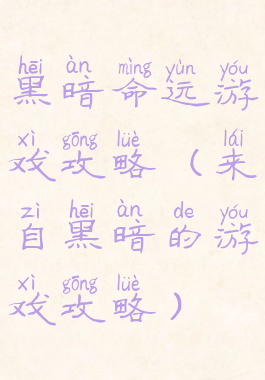 hēi àn mìng yùn yóu
黑暗命远游
xì gōng lüè lái
戏攻略（来
zì hēi àn de yóu
自黑暗的游
xì gōng lüè
戏攻略）